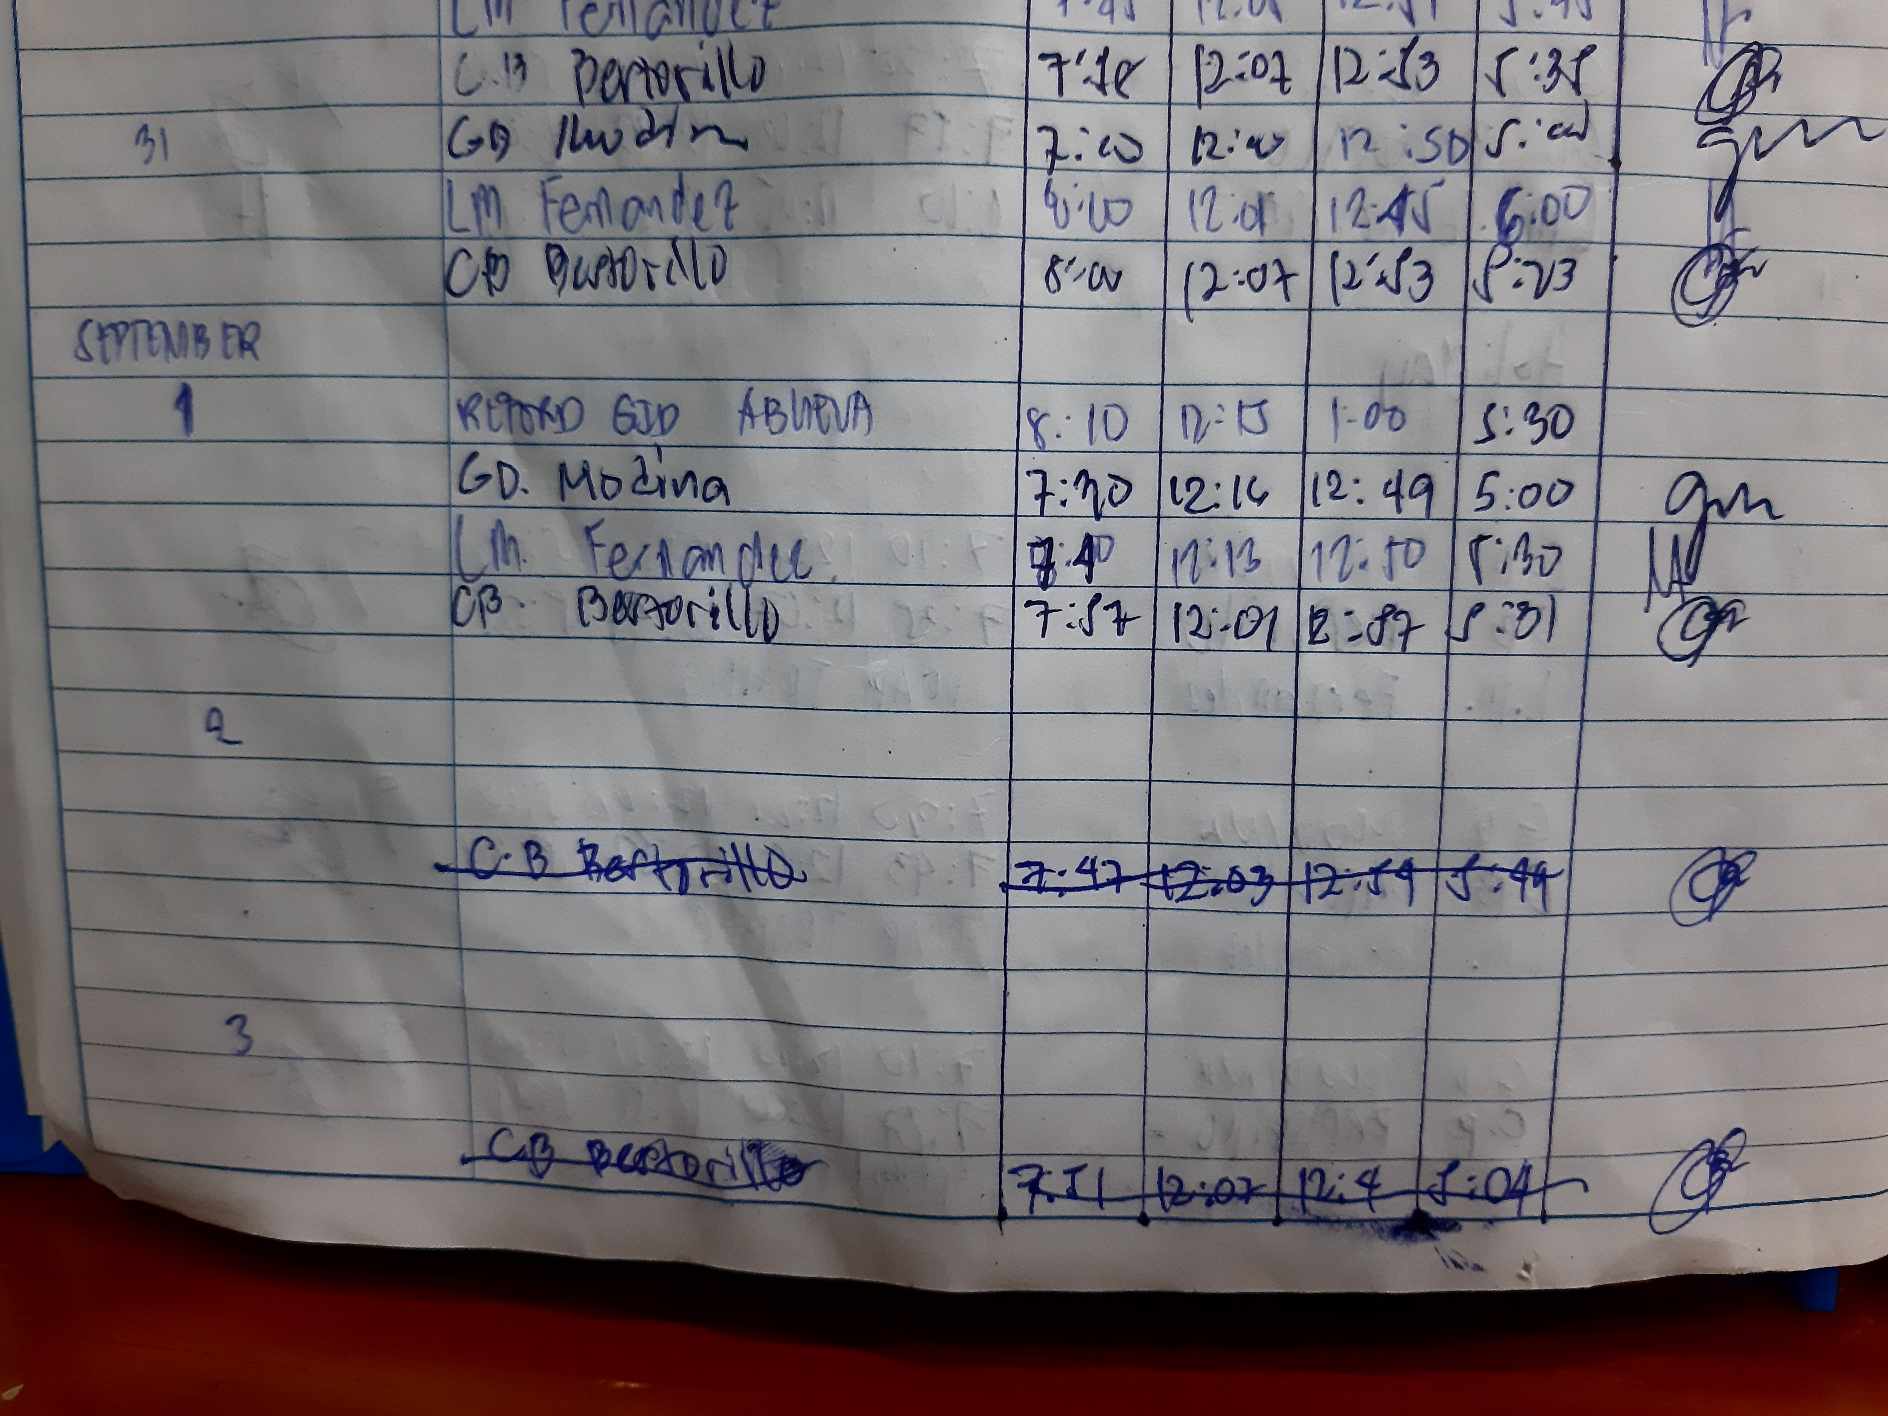 LM Fernandez
C.B Bertorillo 12:07 12:53 5:35
31 GD 7:00 12:00 12:50 5:00
LM Fernandez 8:00 12:01 12:45 6:00
CB Bertorillo 8:00 12:07 12:53 5:23
SEPTEMBER
1 ABUEVA 8:10 12:15 1:00 5:30
GD. Modina 7:30 12:14 12:49 5:00
LM. Fernandez 12:13 12:50 5:30
CB Bertorillo 7:57 12:01 12:57 5:31
2
C.B Bertorillo 7:47 12:03 12:54 5:44
3
CB Bertorillo 7:51 12:07 12:4 5:04